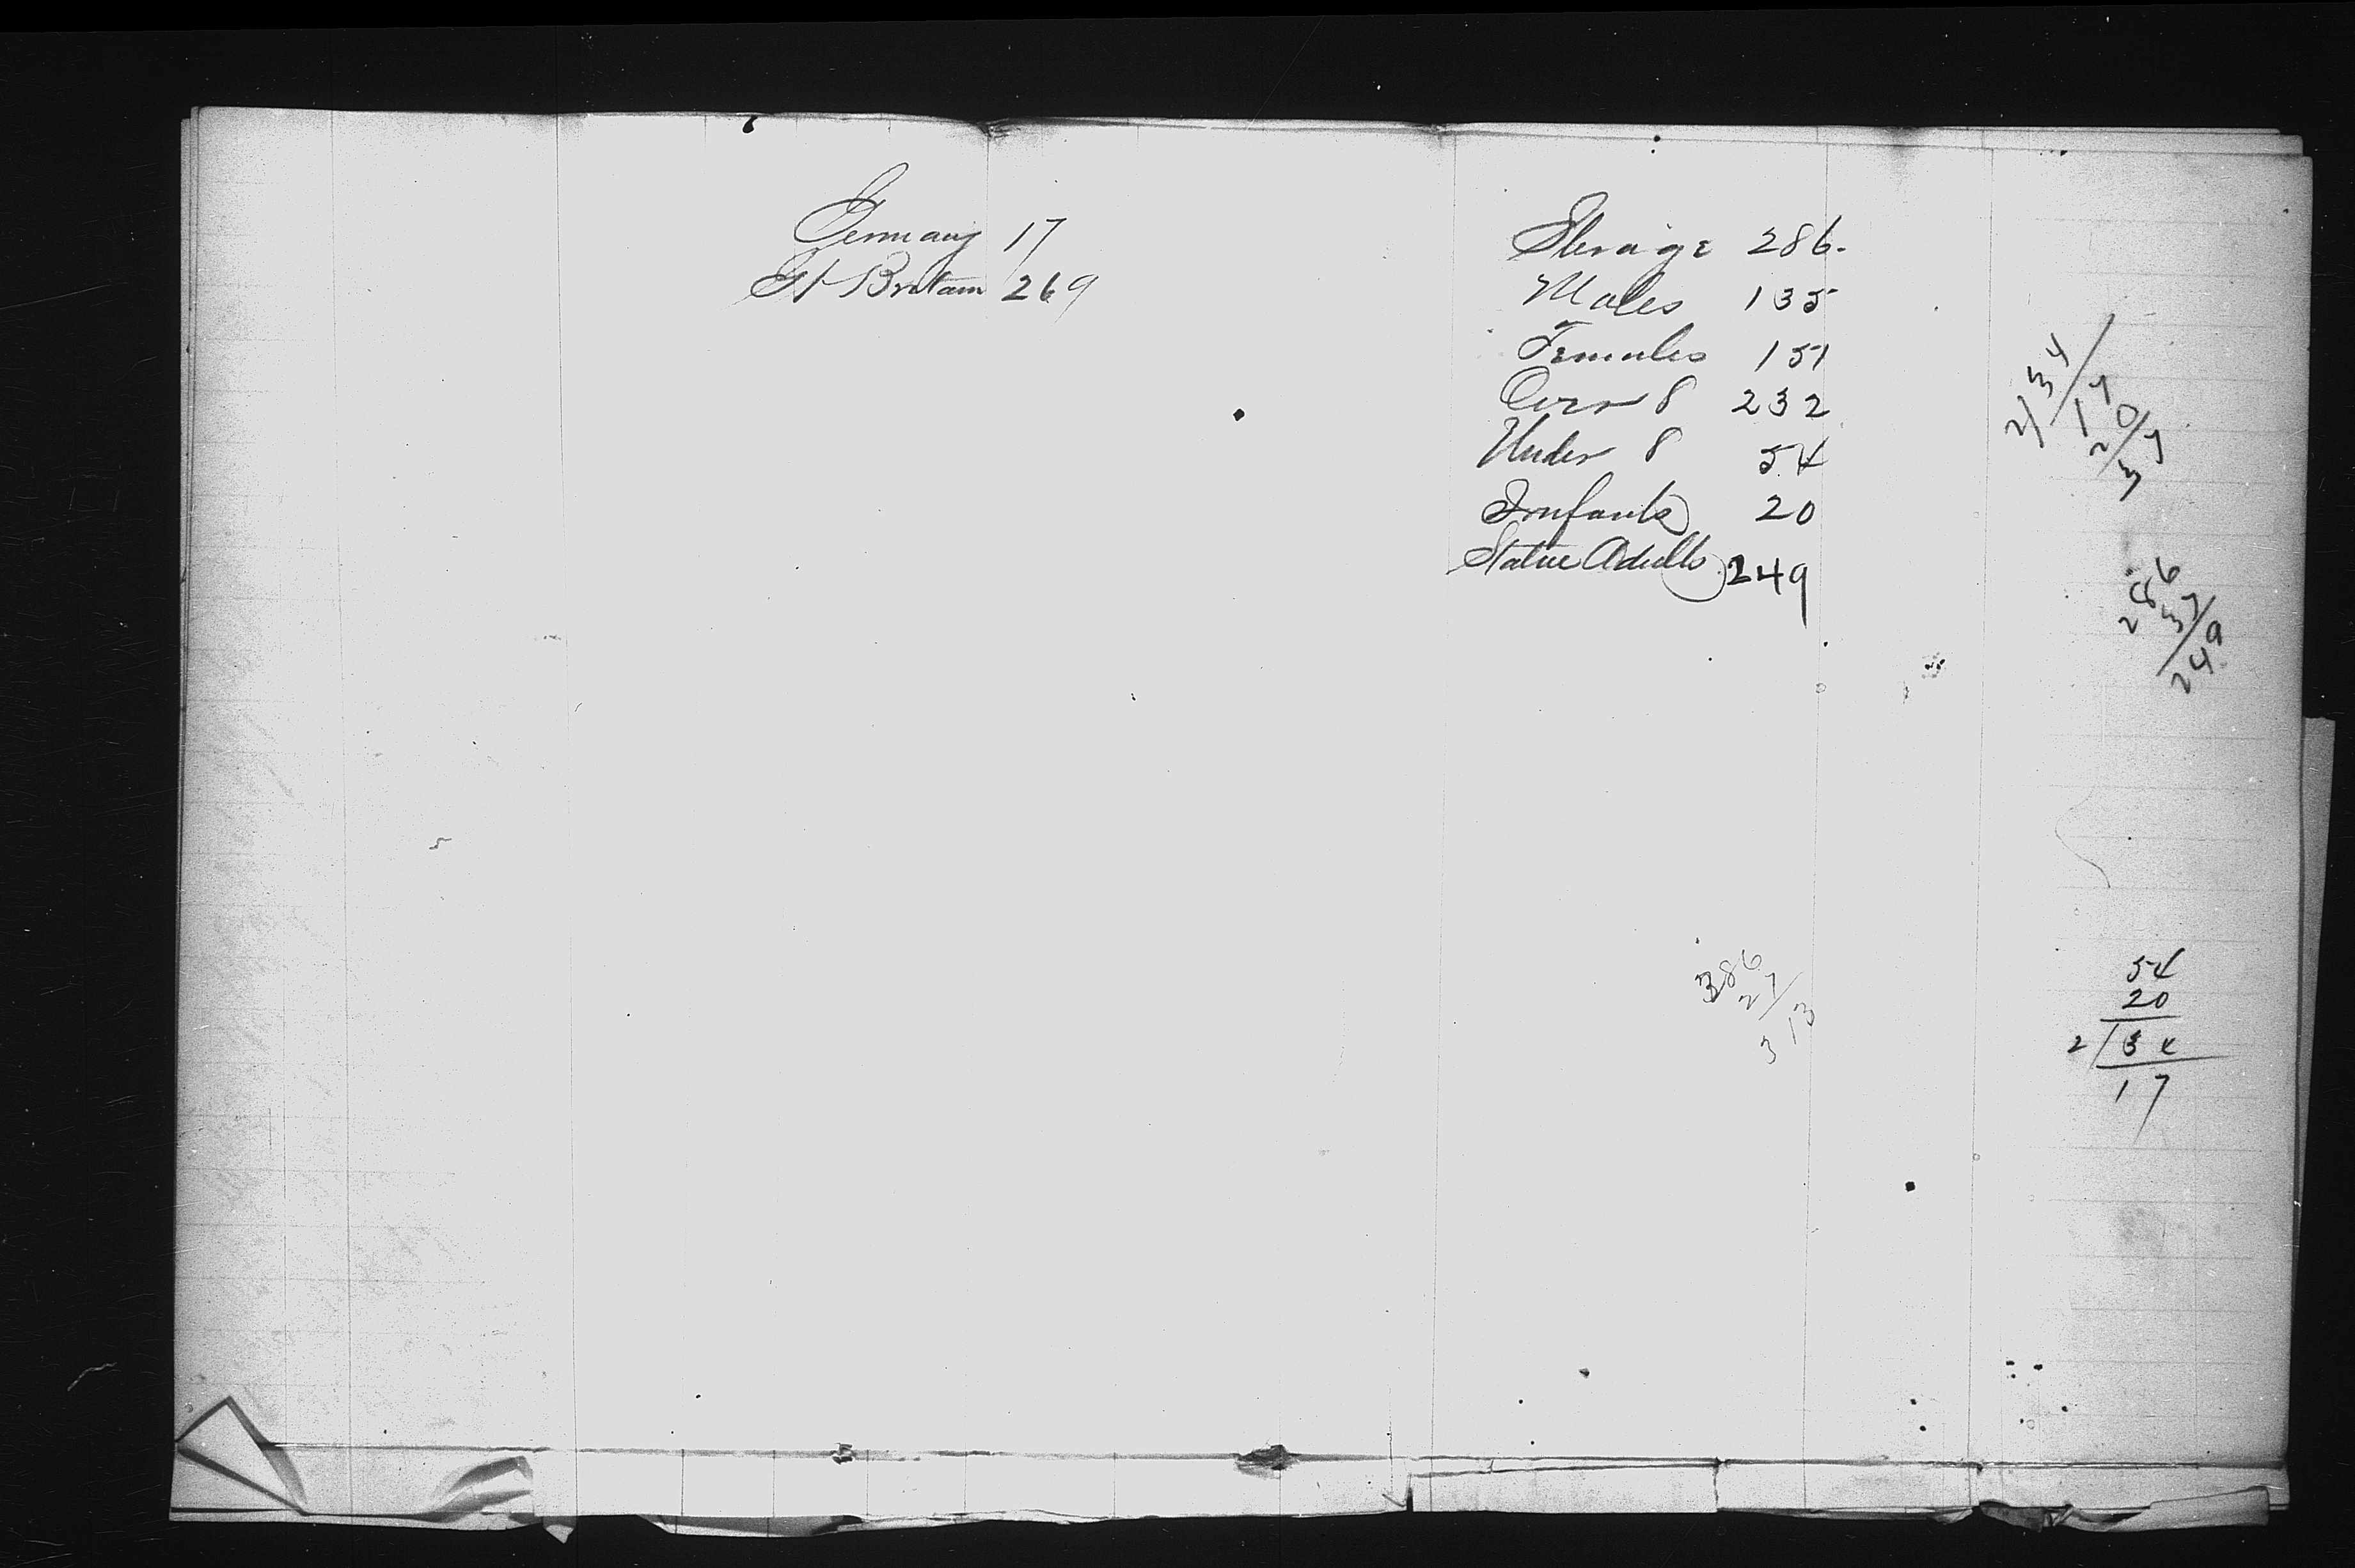 Germany 17
Gt Britain 269
Sterage 286.
Males 135
Females 151
Over 8 232
Under 8 54
Innfants 20
Statue Adults 249
2/34
17
20
37
286
37
249
386
27
313
54
20
2/34
17